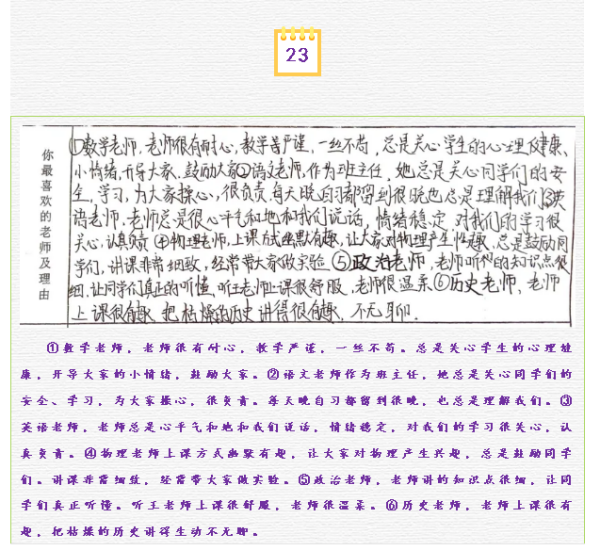 23
你最喜欢的老师及理由
①数学老师,老师很有耐心,教学严谨,一丝不苟,总是关心学生的心理健康、
小情绪,开导大家,鼓励大家②语文老师,作为班主任,她总是关心同学们的安
全,学习,为大家操心,很负责每天晚自习都留到很晚也总是理解我们③英
语老师,老师总是很心平气和地和我们说话,情绪稳定,对我们的学习很
关心,认真负责④物理老师,上课方式幽默有趣,让大家对物理产生兴趣,总是鼓励同
学们,讲课非常细致,经常带大家做实验⑤政治老师,老师的知识点很
细,让同学们真正的听懂,听王老师上课很舒服,老师很温柔⑥历史老师,老师
上课很有趣,把枯燥的历史讲得很有趣,不无聊.
①数学老师,老师很有耐心,教学严谨,一丝不苟。总是关心学生的心理健
康,开导大家的小情绪,鼓励大家。②语文老师作为班主任,她总是关心同学们的
安全、学习,为大家操心,很负责。每天晚自习都留到很晚,也总是理解我们。③
英语老师,老师总是心平气和地和我们说话,情绪稳定,对我们的学习很关心,认
真负责。④物理老师上课方式幽默有趣,让大家对物理产生兴趣,总是鼓励同学
们。讲课非常细致,经常带大家做实验。⑤政治老师,老师讲的知识点很细,让同
学们真正听懂。听王老师上课很舒服,老师很温柔。⑥历史老师,老师上课很有
趣,把枯燥的历史讲得生动不无聊。